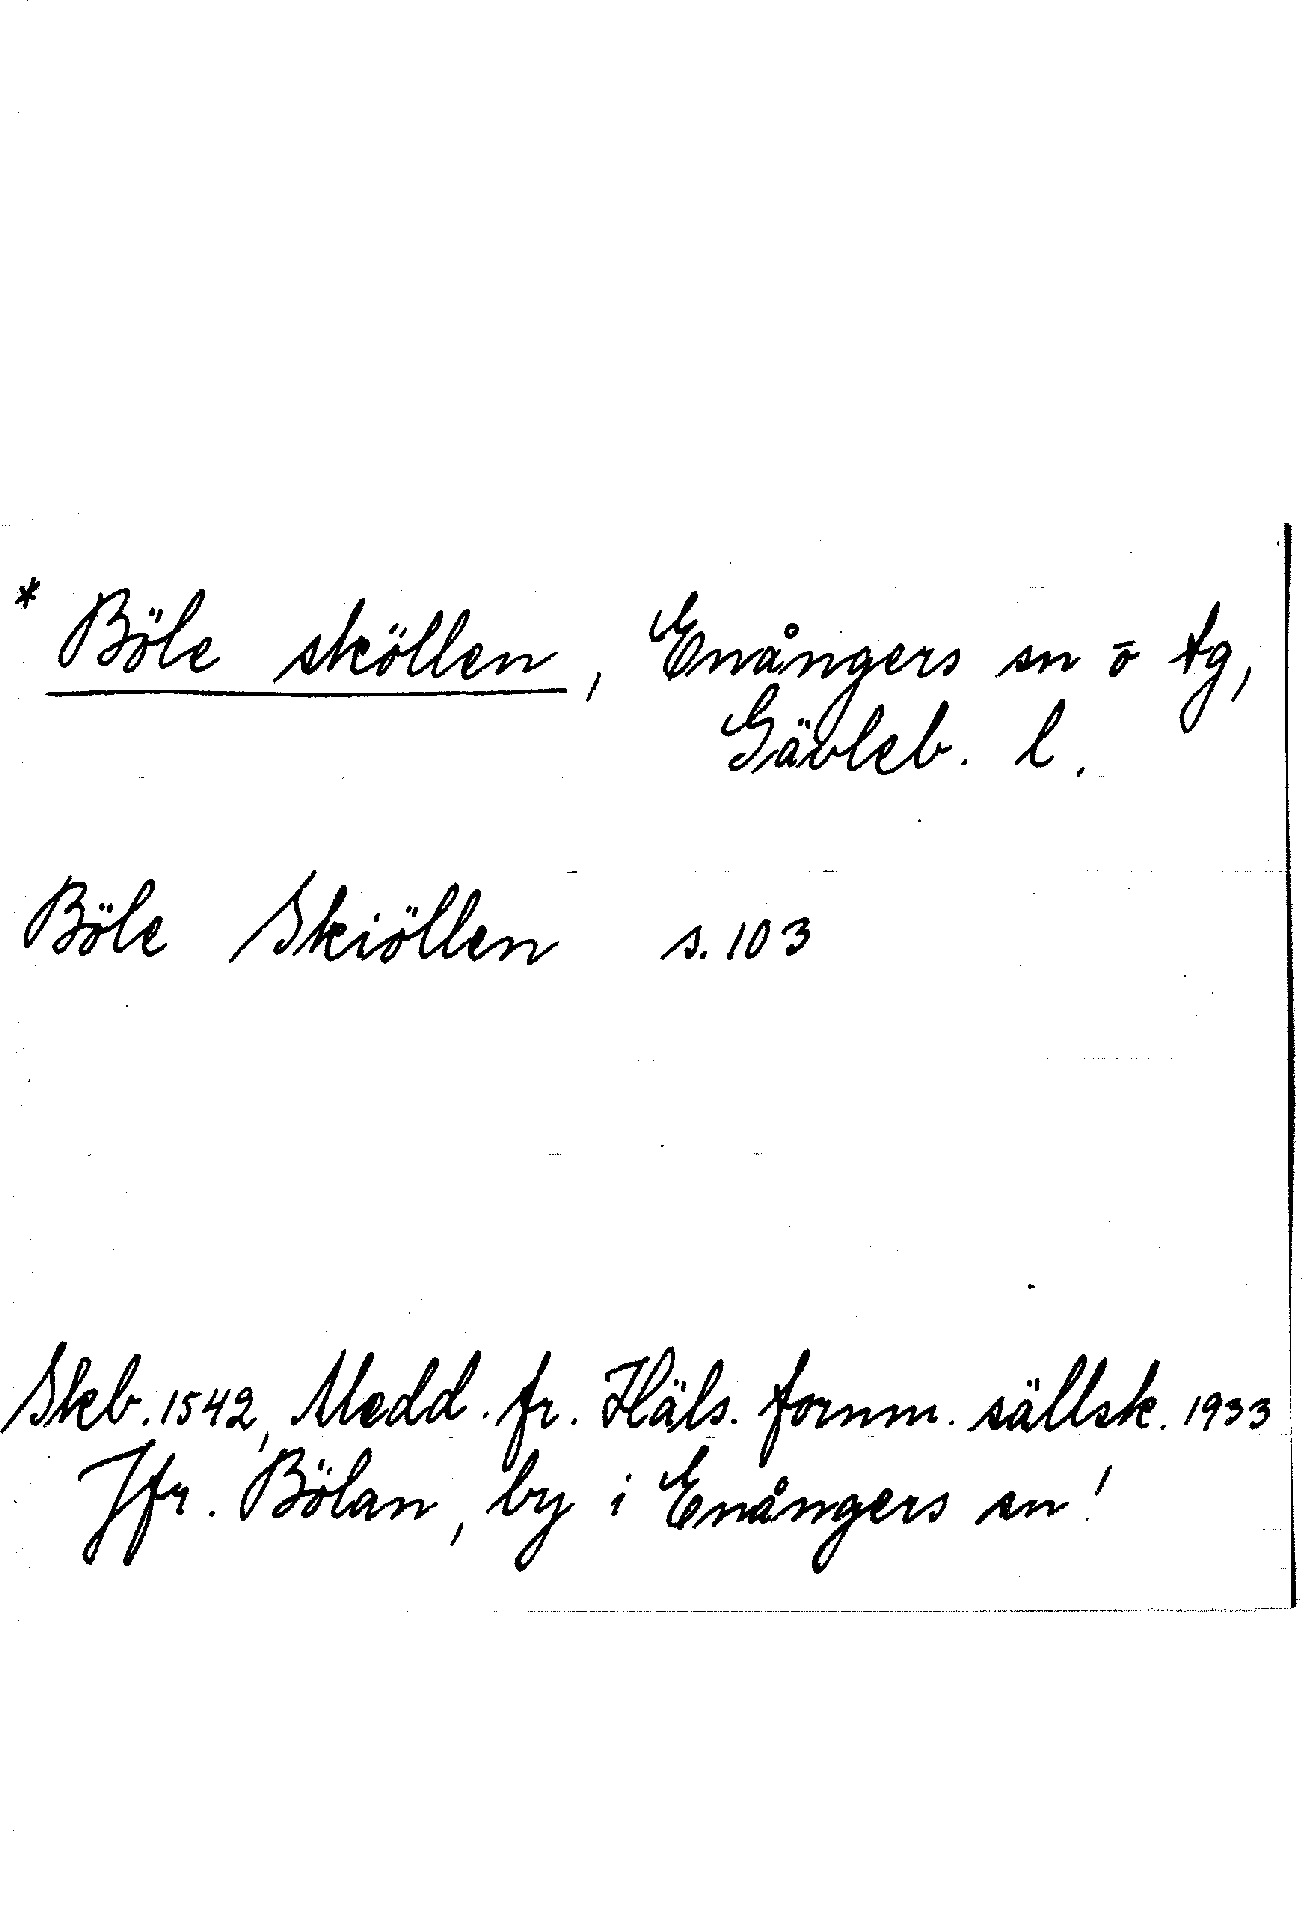 * Böle sköllen, Enångers sn o tg,
Gävleb. l.
Böle Skiöllen s. 103
Skb. 1542, Medd. fr. Häls. fornm. sällsk. 1933
Jfr. Bölan, by i Enångers sn!